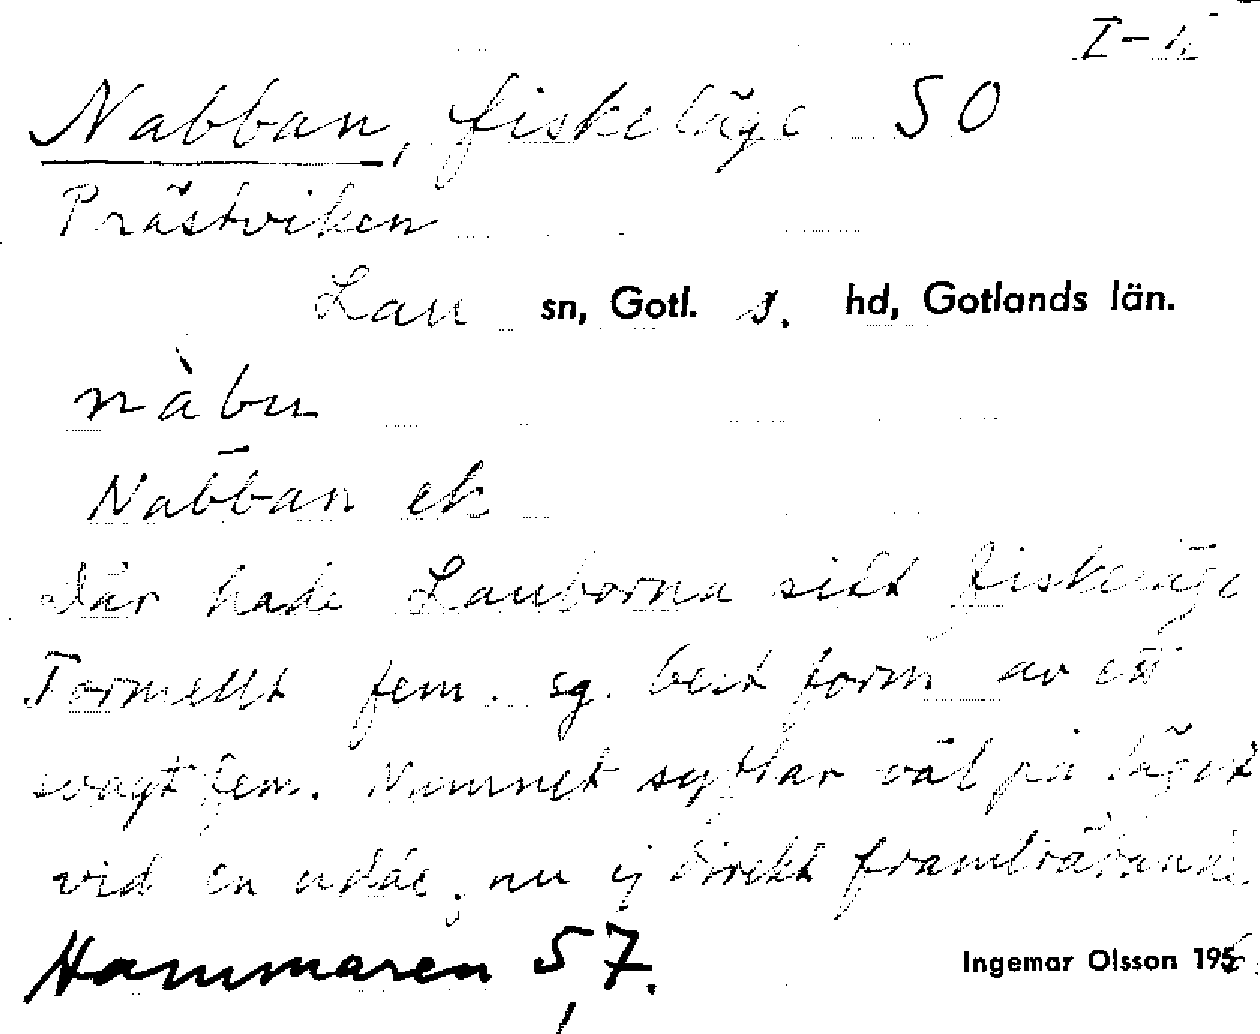 Nabban, fiskeläge SO
Prästviken
Lau sn, Gotl. s. hd, Gotlands län.
nàbu
Nabban ek
Där hade Lauborna sitt fiskeläge
Formellt fem. sg. best form av ett
svagt fem. Namnet syftar väl på läget
vid en udde, nu ej direkt framträdande.
Hammaren 57.
Ingemar Olsson 195